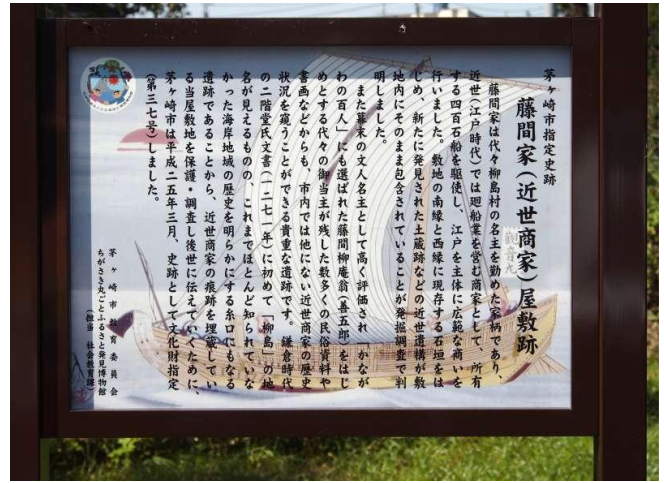 茅ヶ崎市指定史跡
藤間家(近世商家)屋敷跡
藤間家は代々柳島村の名主を勤めた家柄であり、
近世(江戸時代)では廻船業を営む商家として、所有
する四百石船を駆使し、江戸を主体に広範な商いを
行いました。敷地の南縁と西縁に現存する石垣をは
じめ、新たに発見された土蔵跡などの近世遺構が敷
地内にそのまま包含されていることが発掘調査で判
明しました。
また幕末の文人名主として高く評価され「かなが
わの百人」にも選ばれた藤間柳庵翁(善五郎)をはじ
めとする代々の御当主が残した数多くの民俗資料や
書画などからも、市内では他にない近世商家の歴史
状況を窺うことができる貴重な遺跡です。鎌倉時代
の二階堂氏文書(一二七一年)に初めて「柳島」の地
名が見えるものの、これまでほとんど知られていな
かった海岸地域の歴史を明らかにする糸口にもなる
遺跡であることから、近世商家の痕跡を埋蔵してい
る当屋敷地を保護・調査し後世に伝えていくために、
茅ヶ崎市は平成二五年三月、史跡として文化財指定
(第三七号)しました。
茅ヶ崎市教育委員会
ちがさき丸ごとふるさと発見博物館
(担当 社会教育課)
觀音丸